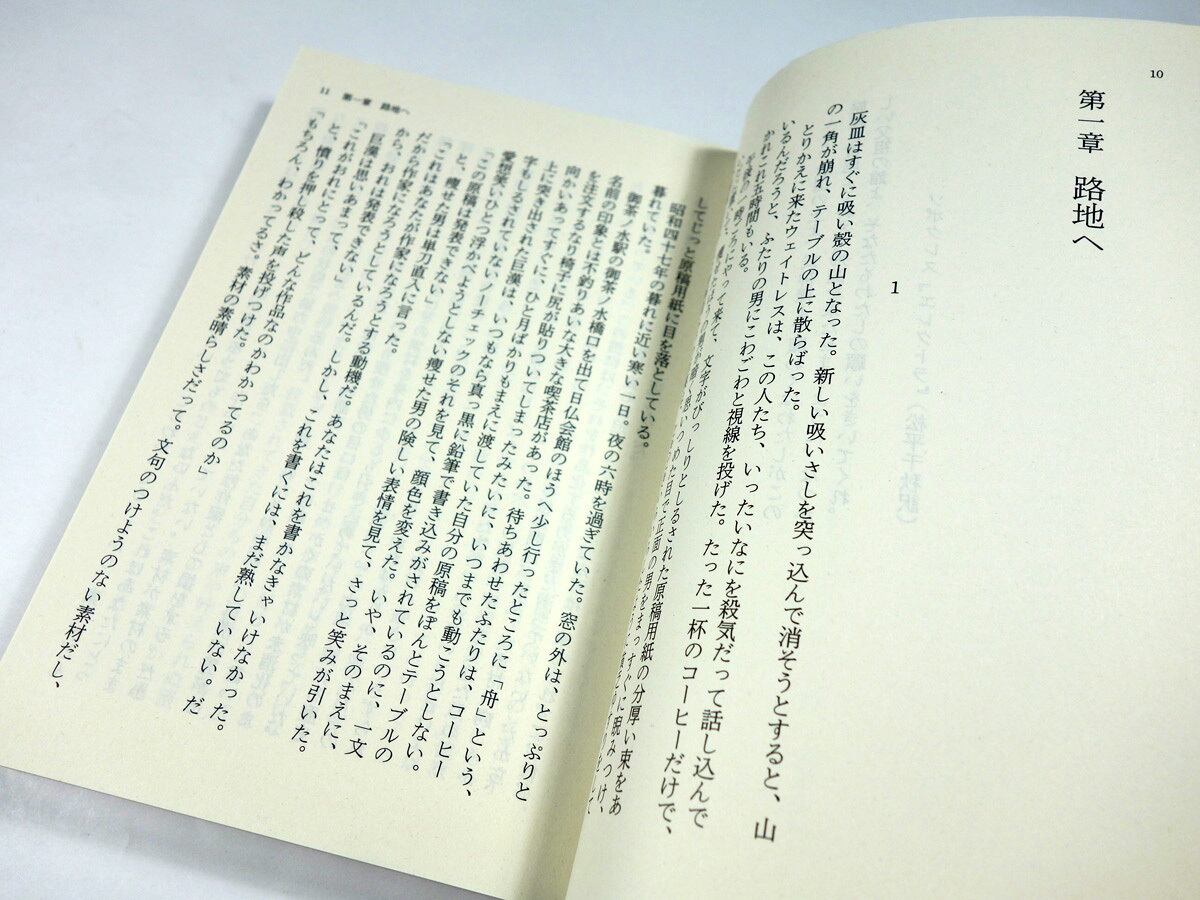 10
第一章　路地へ
1
灰皿はすぐに吸い殻の山となった。新しい吸いさしを突っ込んで消そうとすると、山
の一角が崩れ、テーブルの上に散らばった。
とりかえに来たウェイトレスは、この人たち、いったいなにを殺気だって話し込んで
いるんだろうと、ふたりの男にこわごわと視線を投げた。たった一杯のコーヒーだけで、
かれこれ五時間もいる。
文字がびっしりとしるされた原稿用紙の分厚い束をあ
してじっと原稿用紙に目を落としている。
11　第一章　路地へ
昭和四十七年の暮れに近い寒い一日。夜の六時を過ぎていた。窓の外は、とっぷりと
暮れていた。
御茶ノ水駅の御茶ノ水橋口を出て日仏会館のほうへ少し行ったところに「舟」という、
名前の印象とは不釣りあいな大きな喫茶店があった。待ちあわせたふたりは、コーヒー
を注文するなり椅子に尻が貼りついてしまったみたいに、いつまでも動こうとしない。
向かいあってすぐに、ひと月ばかりもまえに渡していた自分の原稿をぽんとテーブルの
上に突き出された巨漢は、いつもなら真っ黒に鉛筆で書き込みがされているのに、一文
字もしるされていないノーチェックのそれを見て、顔色を変えた。いや、そのまえに、
愛想笑いひとつ浮かべようとしない痩せた男の険しい表情を見て、さっと笑みが引いた。
「この原稿は発表できない」
と、痩せた男は単刀直入に言った。
「これはあなたが作家になろうとする動機だ。あなたはこれを書かなきゃいけなかった。
だから作家になろうとしているんだ。しかし、これを書くには、まだ熟していない。だ
から、おれは発表できない」
巨漢は思いあまって、
「これがおれにとって、どんな作品なのかわかってるのか」
と、憤りを押し殺した声を投げつけた。
「もちろん、わかってるさ。素材の素晴らしさだって。文句のつけようのない素材だし、